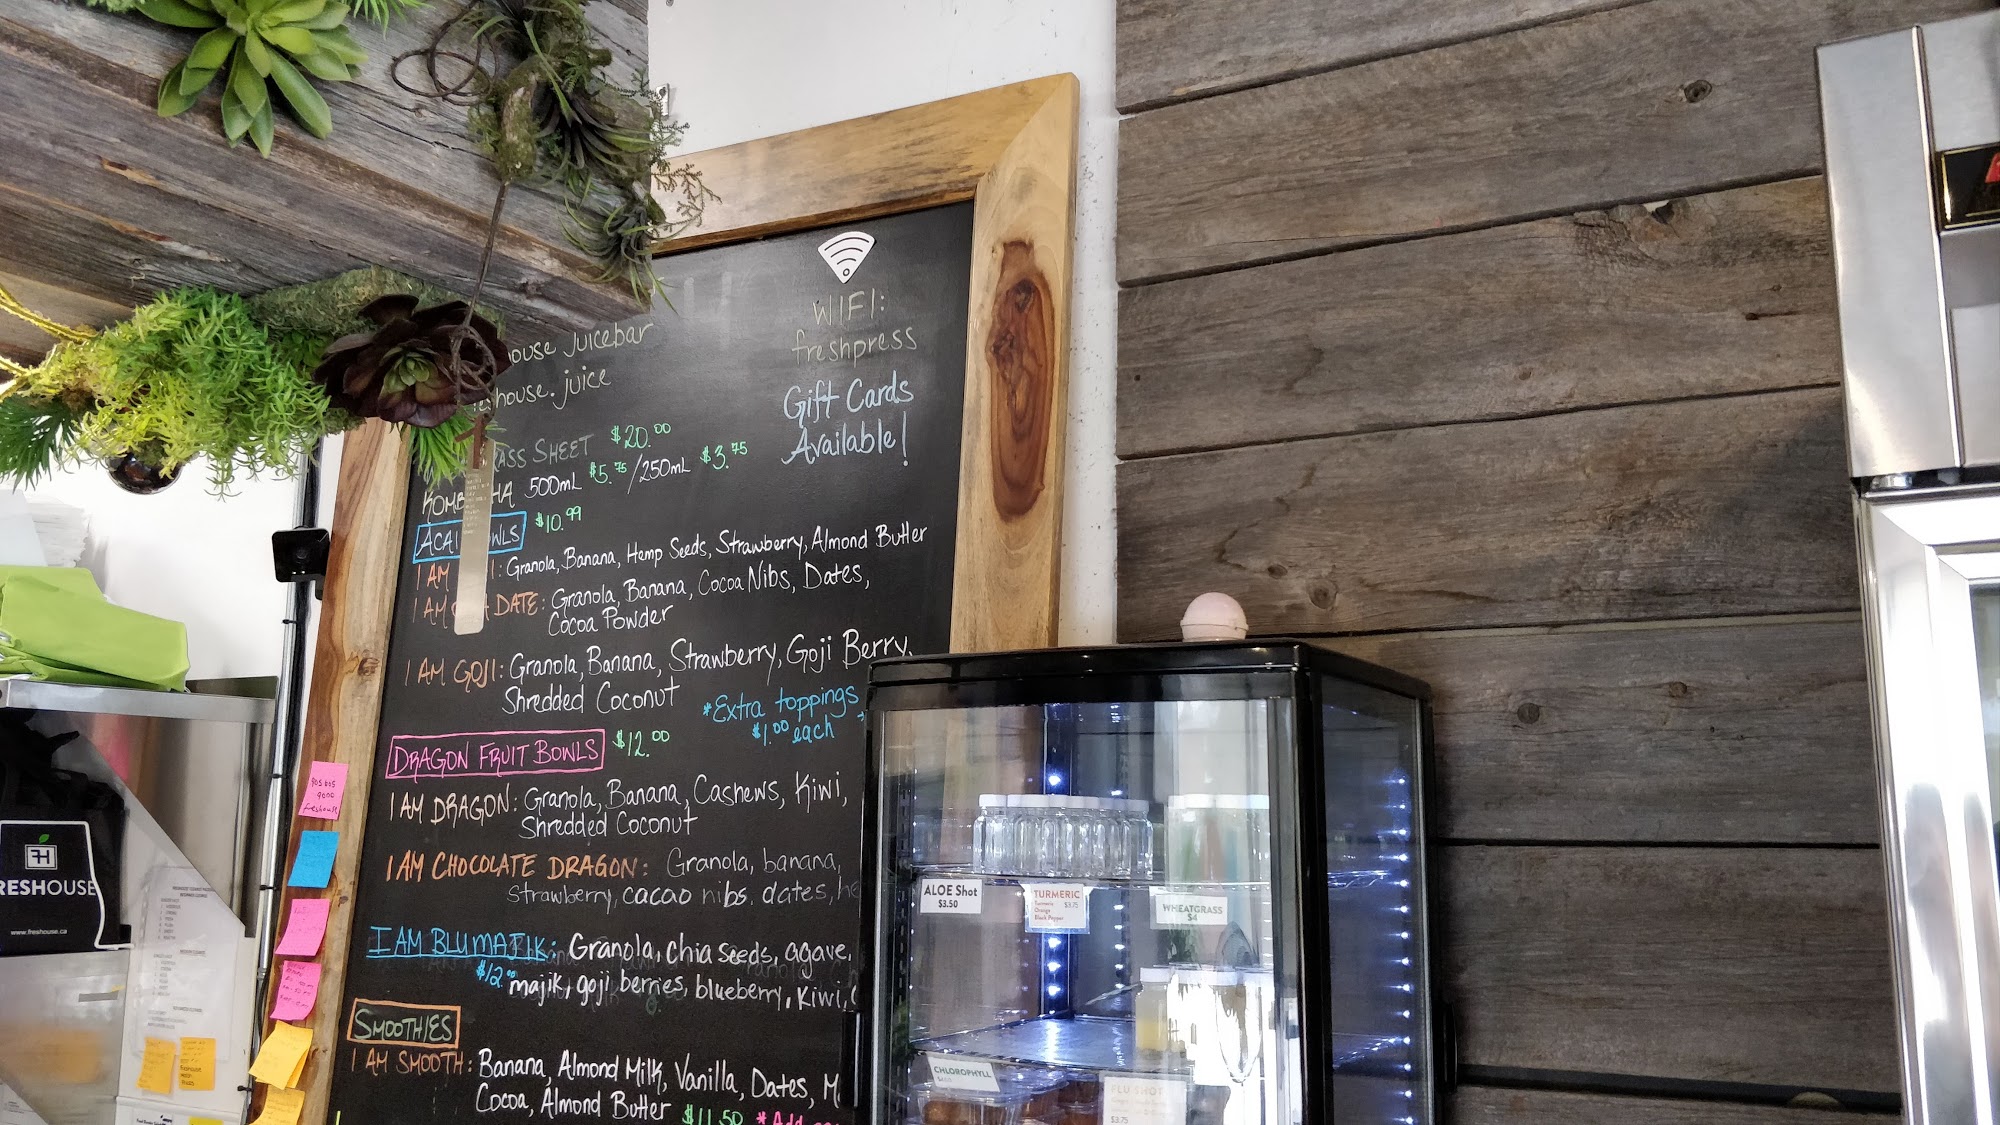 WIFI:
freshpress
Gift Cards
Available!
ouse juicebar
eshouse.juice
RASS SHEET $20.00
500mL $5.75/250mL $3.75
$10.99
I AM : Granola, Banana, Hemp Seeds, Strawberry, Almond Butter
I AM DATE: Granola, Banana, Cocoa Nibs, Dates,
Cocoa Powder
I AM GOJI: Granola, Banana, Strawberry, Goji Berry,
Shredded Coconut
*Extra toppings
$1.00 each
DRAGON FRUIT BOWLS $12.00
I AM DRAGON: Granola, Banana, Cashews, Kiwi,
Shredded Coconut
I AM CHOCOLATE DRAGON: Granola, banana,
strawberry, cacao nibs, dates, he
I AM BLUMAJIK: Granola, chia seeds, agave,
$12.00 majik, goji berries, blueberry, kiwi,
SMOOTHIES
I AM SMOOTH: Banana, Almond Milk, Vanilla, Dates, M
Cocoa, Almond Butter $11.50 *Add
ALOE Shot
$3.50
TURMERIC
Turmeric $3.75
Orange
Black Pepper
WHEATGRASS
$4
CHLOROPHYLL
FLU SHOT
$3.75
FH
RESHOUSE
www.freshouse.ca
905 605
9000
freshouse